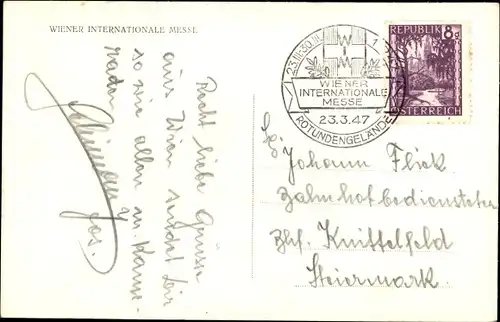 WIENER INTERNATIONALE MESSE
Recht liebe Grüsse
aus Wien sendet Dir
so wie allen m. Kame-
raden
Jos.
23.III.-30.III.
W
I M
1
WIENER
INTERNATIONALE
MESSE
23.3.47
ROTUNDENGELÄNDE
REPUBLIK 8g
ÖSTERREICH
Johann Flick
Bahnhofbediensteter
Bhf. Knittelfeld
Steiermark.